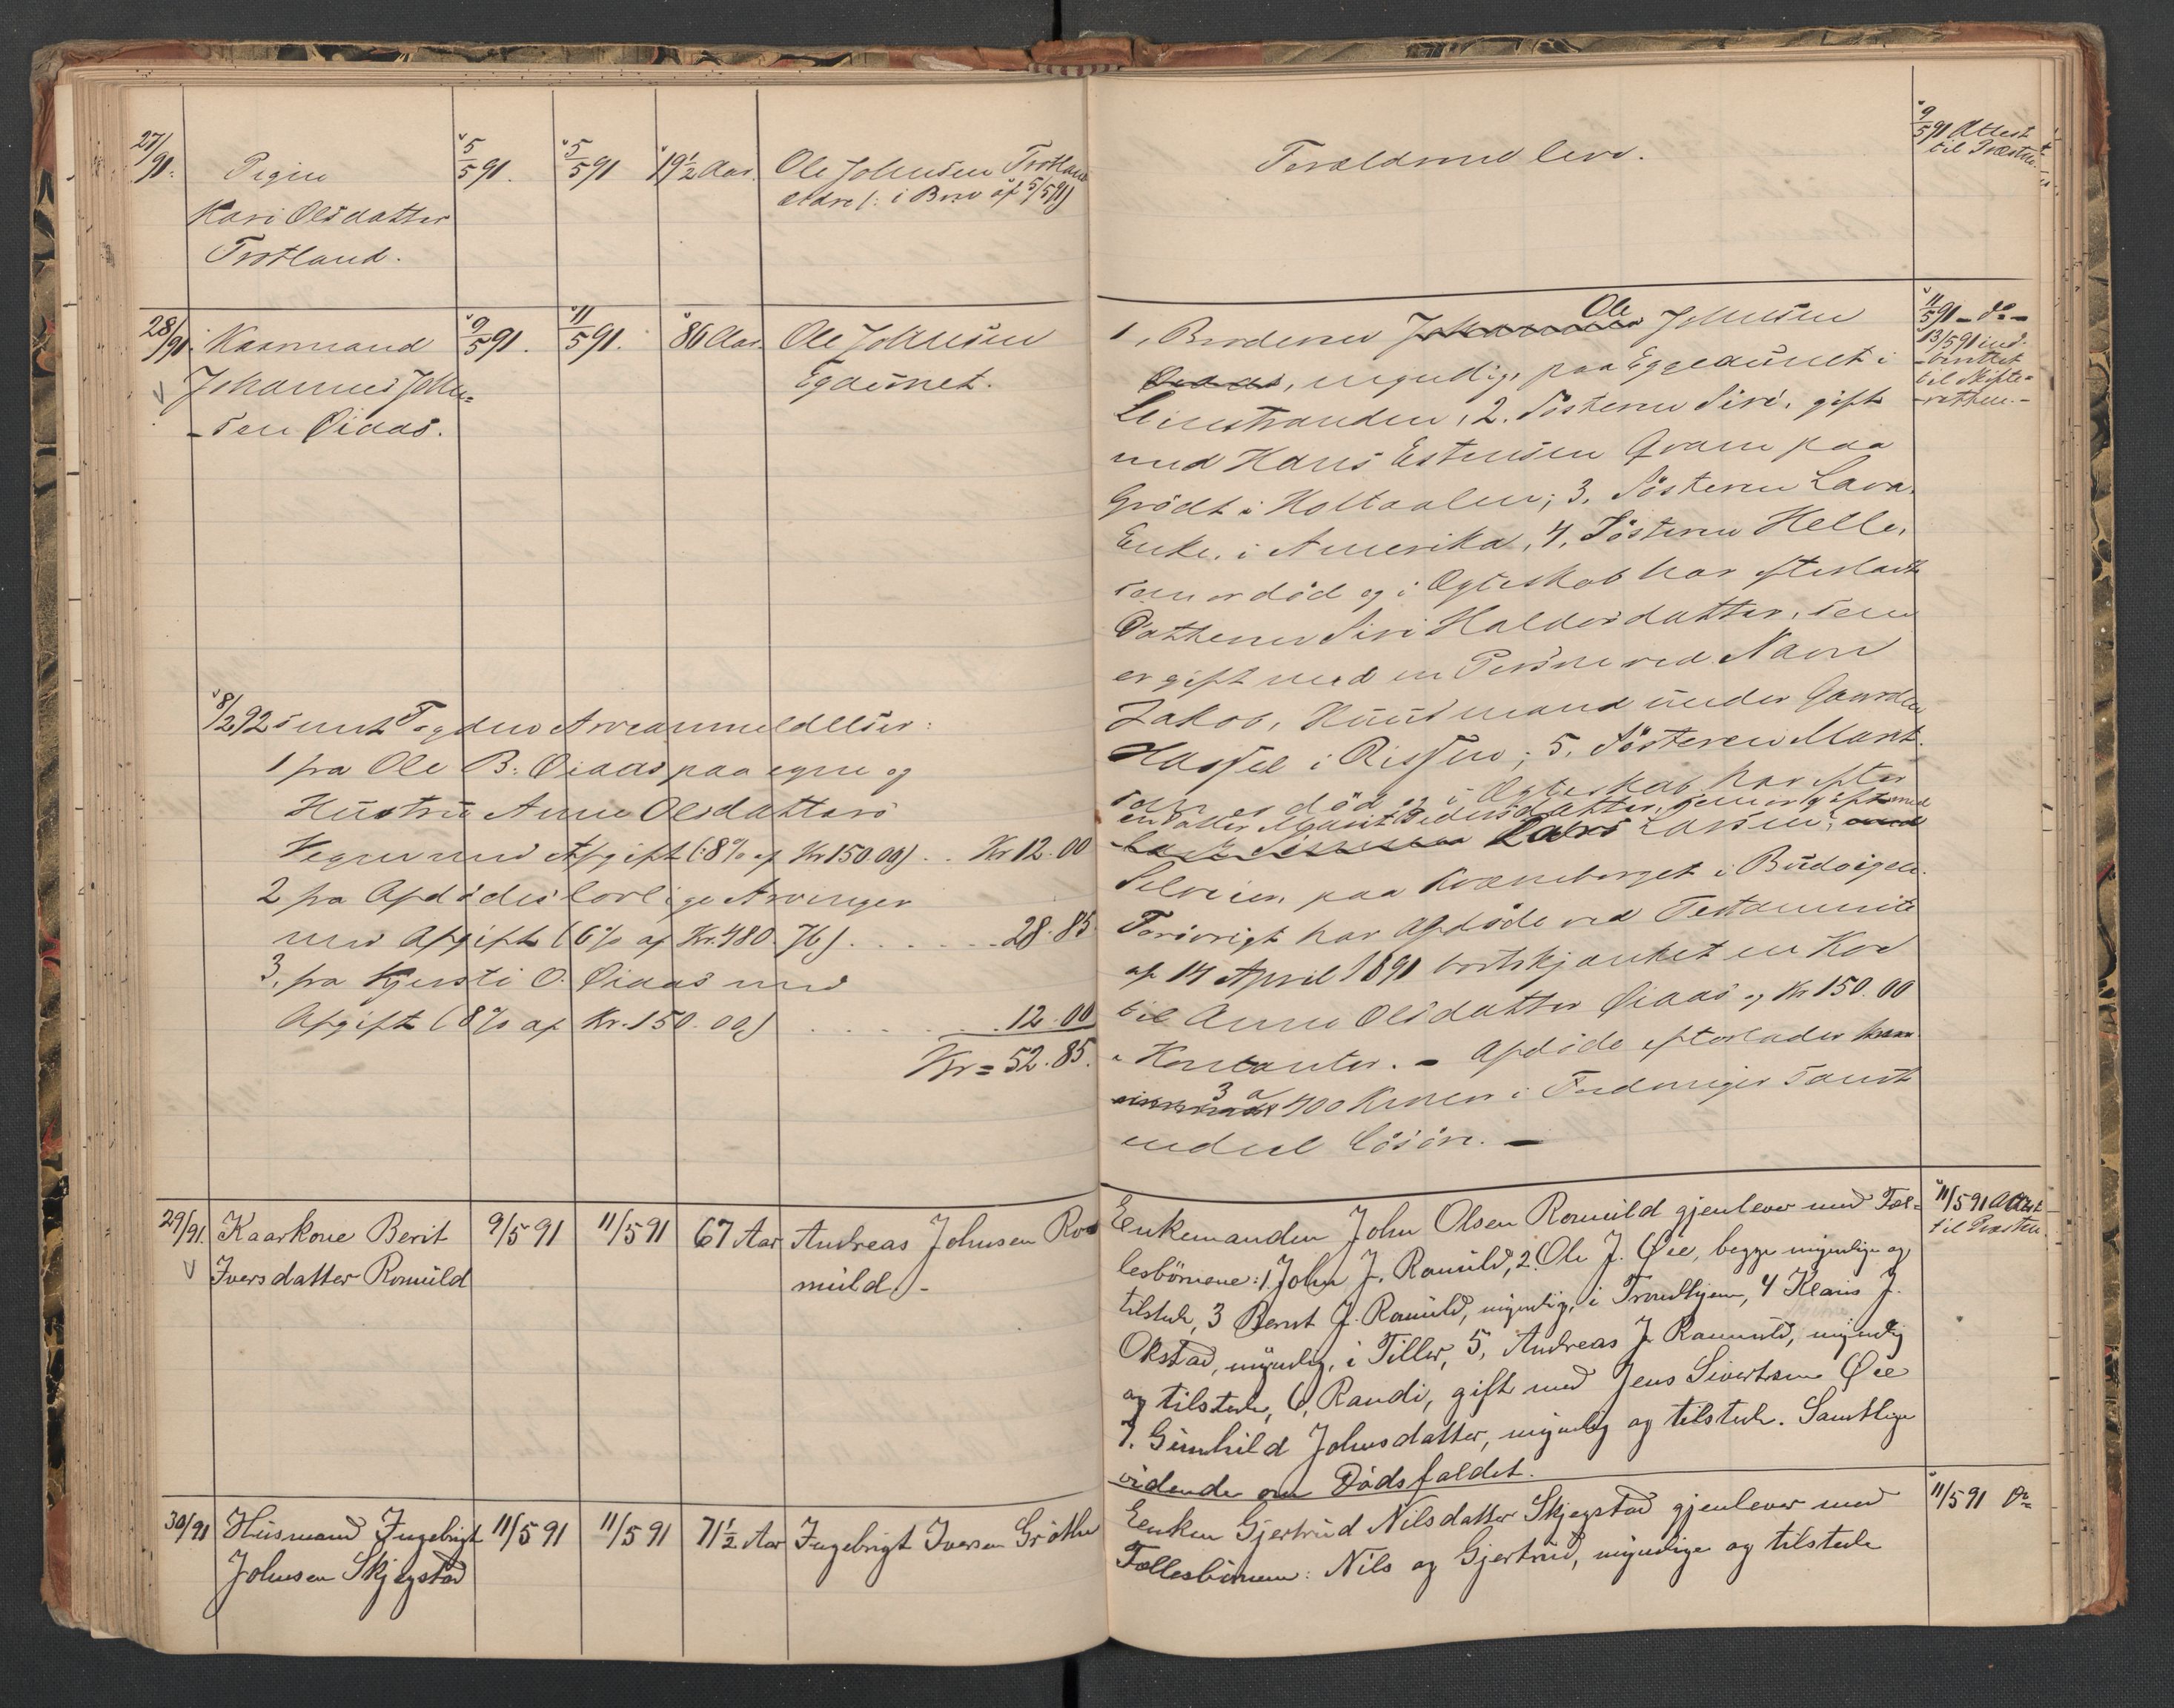 27/91.
Pigen
Kari Olsdatter
Trotland.
5/5 91.
5/5 91
19½ Aar.
Ole Johnsen Trotland
ældre (: i Brev af 5/5 91)
Forældrene leve.
9/5 91 Attest
til Præsten.
28/91.
Kaarmand
Johannes John-
-sen Øiaas.
9/5 91.
11/5 91.
86 Aar.
Ole Johnsen
Egaunet.
8/2 92 sendt Fogden Arveanmeldelser:
1 fra Ole B. Øiaas paa egne og
Hustru Anne Olsdatters
Vegne med Afgift (8% af Kr 150.00) .. Kr 12.00
2 fra Afdødes lovlige Arvinger
med Afgift (6% af Kr. 480.76) ...... 28.85
3. fra Kjersti O. Øiaas med
Afgift (8% af Kr. 150.00) ...... 12.00
Kr = 52.85.
1, Broderen Ole Johnsen
Øiaas, myndig, paa Eggeaunet i
Leinstranden, 2. Søsteren Siri, gift
med Hans Estensen Qvam paa
Grødt i Holtaalen; 3. Søsteren Lava.
Enke, i Amerika, 4, Søsteren Helle,
som er død og i Ægteskab har efterladt
Datteren Siri Haldorsdatter, som
er gift med en Person ved Navn
Jakob, Husmand under Gaarden
Hassel i Rissen; 5. Søsteren Marit.
som er død og i Ægteskab har efter
en Datter Marit Pedersdatter, som er gift med
Lars Larsen, med
Selveier, paa Kvæneberget i Budvigen.
Forøvrigt har Afdøde ved Testamente
af 14 April 1891 bortskjænket en Ko
til Anne Olsdatter Øiaas og Kr 150.00
i Kontanter. - Afdøde efterlader
3 a 400 Kroner i Fordringer samt
endel Løsøre. -
11/5 91 - do -
13/5 91 ind-
-berettet
til Skifte-
-retten. -
29/91.
Kaarkone Berit
Iversdatter Romuld
9/5 91
11/5 91
67 Aar
Andreas Johnsen Ro-
muld. -
Enkemanden John Olsen Romuld gjenlever med Fæl-
lesbørnene: 1. John J. Romuld, 2. Ole J. Øie, begge myndige og
tilstede, 3 Bernt J. Romuld, myndig, i Trondhjem, 4 Klaus J.
Okstad, myndig, i Tiller, 5, Andreas J. Romuld, myndig
og tilstede, 6, Randi, gift med Jens Sivertsen Øie
7. Gunhild Johnsdatter, myndig og tilstede. Samtlige
vidende om Dødsfaldet.
11/5 91 Attest
til Præsten.
30/91
Husmand Ingebrigt
Johnsen Skjegstad
11/5 91
11/5 91
71½ Aar
Ingebrigt Iversen Grøthe
Enken Gjertrud Nilsdatter Skjegstad gjenlever med
Fællesbørnene: Nils og Gjertrud, myndige og tilstede
11/5 91 do